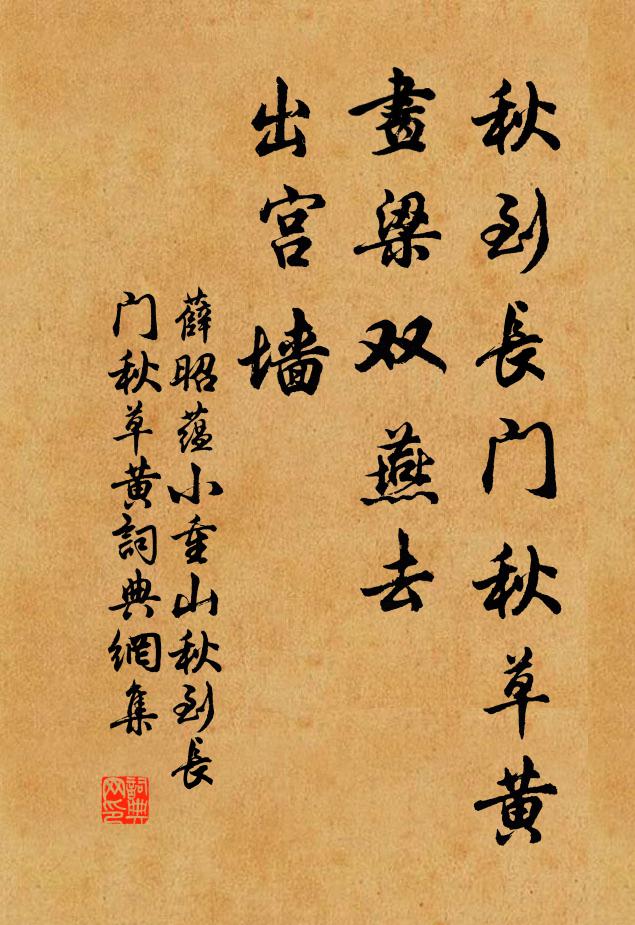 秋到長门秋草黄
畫梁双燕去
出宫墙
薛昭蕴小重山秋到長
门秋草黄詞典網集
詞典
网印